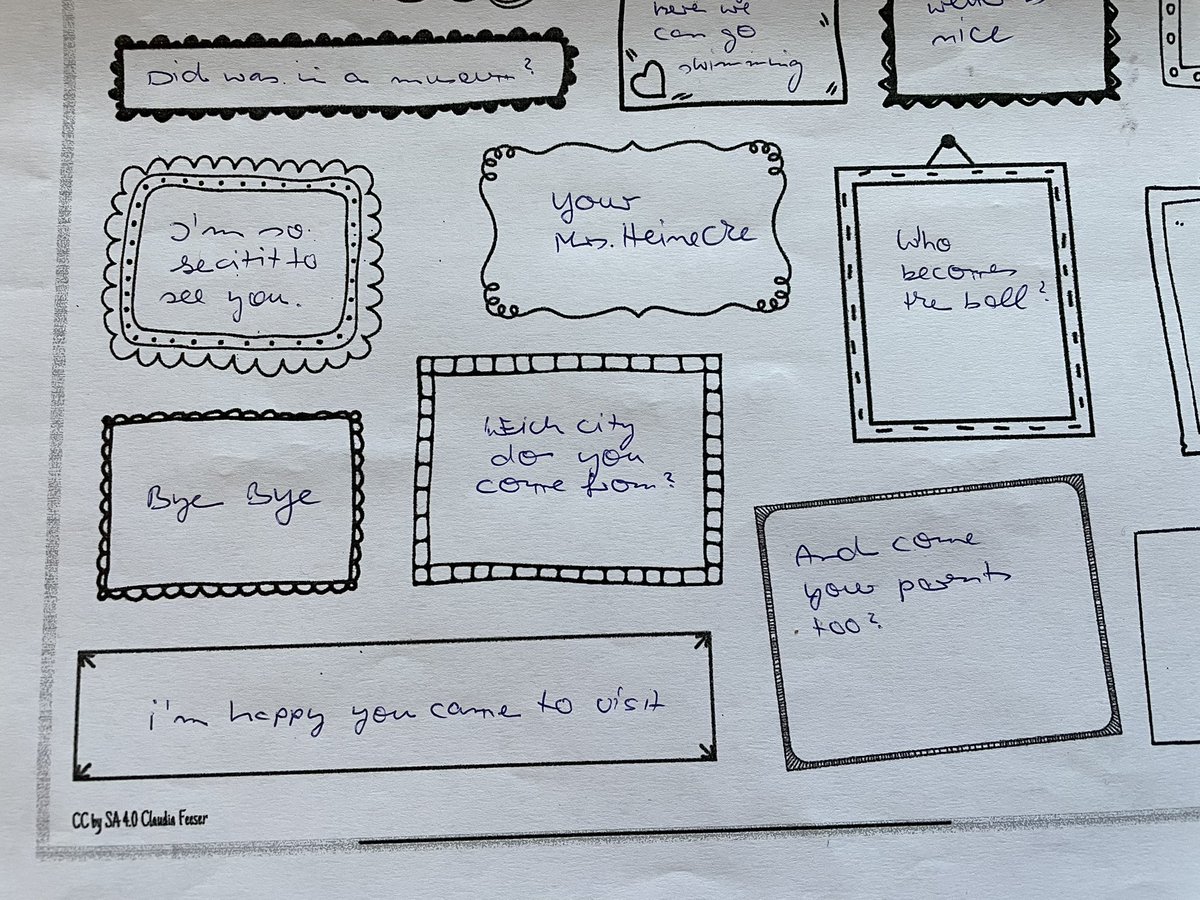 here we
can go
swimming
nice
Did was in a museum?
I'm so
see you.
Your
Mrs. Heinecke
Who
becomes
the ball?
Bye Bye
Weich city
do you
come from?
And come
your parents
too?
i'm happy you came to visit
CC by SA 4.0 Claudia Feeser